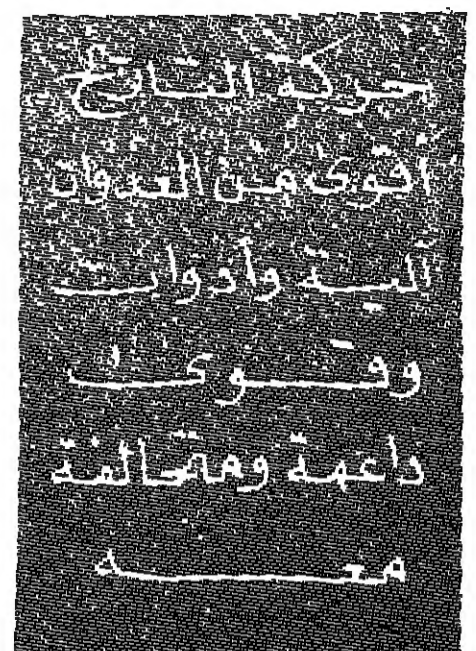 حركة التاريخ
أقوى من العدوان
آلية وأدوات
وقوى
داعمة ومتحالفة
معه